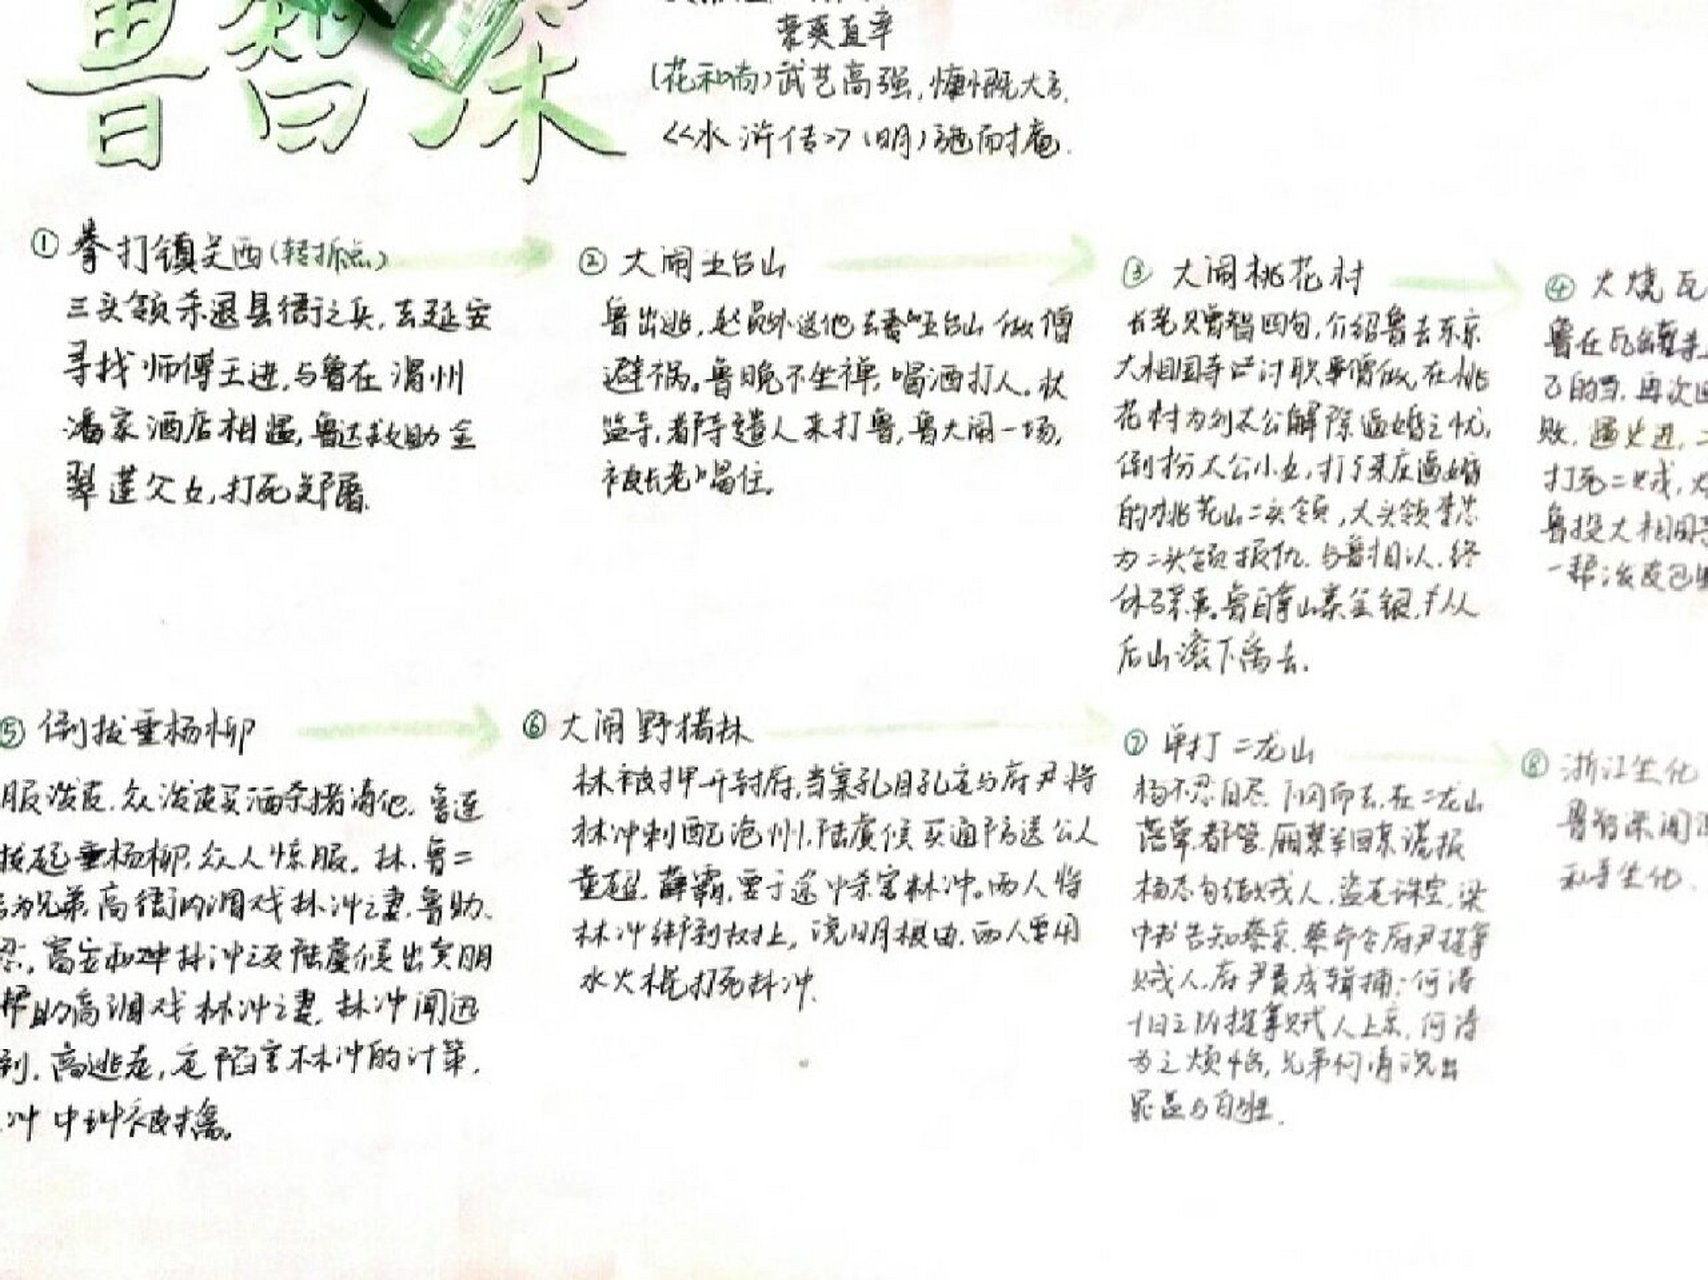 鲁智深
豪爽直率
(花和尚)武艺高强,慷慨大方.
<<水浒传>>(明)施耐庵.
① 拳打镇关西(转折点)
三头领杀退县衙之兵,去延安
寻找师傅王进,与鲁在渭州
潘家酒店相遇,鲁达救助金
翠莲父女,打死郑屠.
② 大闹五台山
鲁出逃,赵员外送他去五台山做僧
避祸。鲁晚不坐禅,喝酒打人。状
监寺,都寺遣人来打鲁,鲁大闹一场,
被长老喝住.
③ 大闹桃花村
长老只赠智四句,介绍鲁去东京
大相国寺讨职事僧做,在桃
花村为刘太公解除逼婚之忧,
倒扮太公小女,打了来庄逼婚
的桃花山二头领,大头领李忠
为二头领报仇.与鲁相认.终
休.鲁自拿山寨金银,从
后山滚下离去.
④ 火烧瓦
鲁在瓦罐寺
的当.再次回
败.遇史进,二
打死二贼,火
鲁投大相国寺
一帮泼皮
⑤ 倒拔垂杨柳
服泼皮.众泼皮买酒杀猪请他.鲁连
拔起垂杨柳.众人惊服.林.鲁二
为兄弟.高衙内调戏林冲之妻.鲁助.
忍,富安和林冲之友陆虞候出卖朋
帮助高调戏林冲之妻.林冲闻迅
到.高逃走,定陷害林冲的计策.
冲中计被擒。
⑥ 大闹野猪林
林被押开封府,当案孔目孔定与府尹将
林冲刺配沧州,陆虞候买通防送公人
董超,薛霸,要于途中杀害林冲。两人将
林冲绑到树上,说明根由.两人要用
水火棍打死林冲.
⑦ 单打二龙山
杨不忍自尽.下冈而去.在二龙山
落草.都管.厢禁军回京谎报
杨志勾结贼人,盗走诛宝.梁
中书告知蔡京.蔡命令府尹捉拿
贼人.府尹责成缉捕:何涛
十日之内捉拿贼人上京.何涛
为之烦恼,兄弟何清说出
晁盖与白胜.
⑧ 浙江坐化
鲁智深闻
和寺坐化.